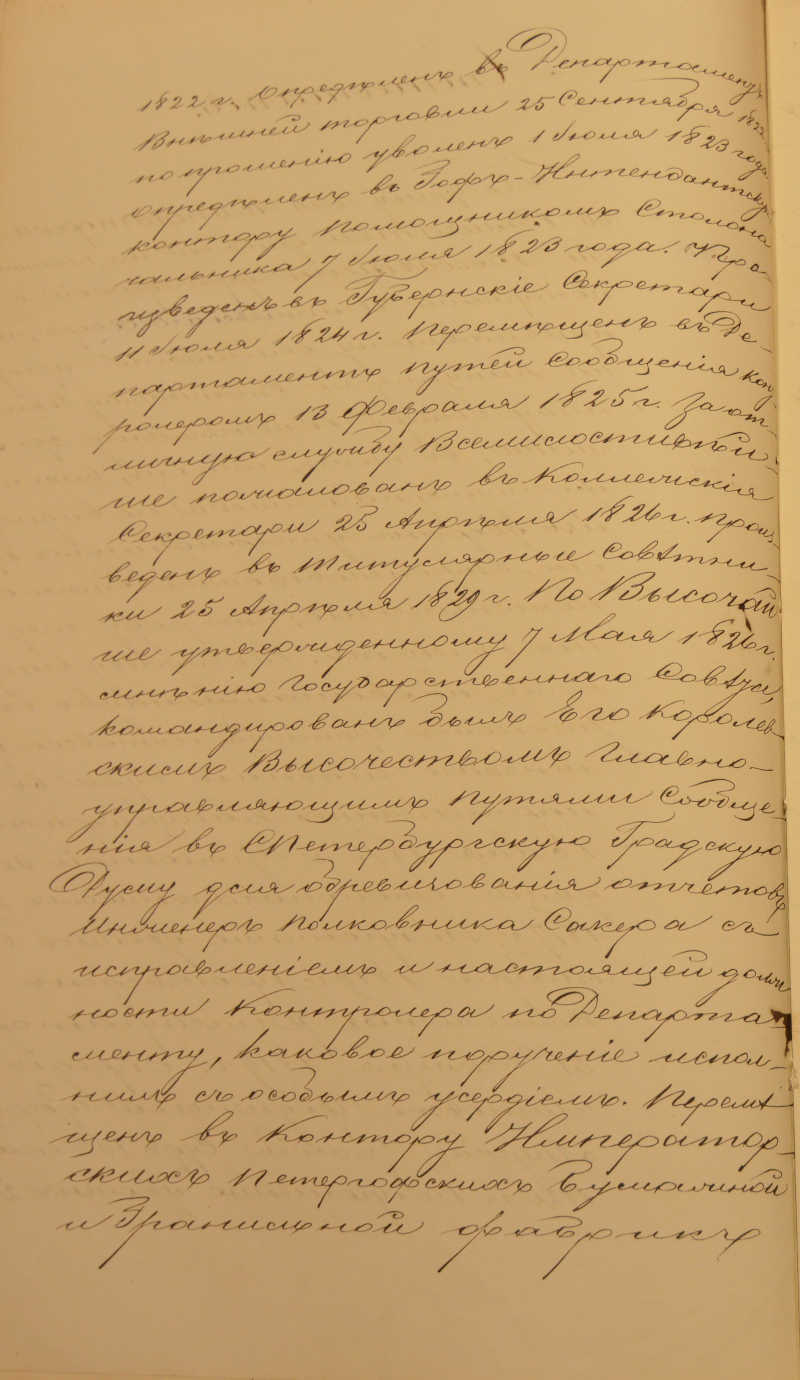 1822 г. опредѣленъ въ Департаментъ
Внѣшней торговли 25 Сентября 1822
по прошенію уволенъ 1 Іюля 1823 года
опредѣленъ въ Гофъ-Интендантскую
контору Помощникомъ Столона
чальника 7 Іюля 1823 года. Про-
изведенъ въ Губернскіе Секретари
11 Іюля 1824 г. Перемѣщенъ въ Де-
партаментъ путей Сообщенія кон
ролеромъ 13 Февраля 1825 г. За от-
личную службу Всемилостивѣй-
ше пожалованъ въ Коллежскія
Секретари 25 Апрѣля 1826 г. произ-
веденъ въ Титулярные Совѣтни-
ки 25 Апрѣля 1829 г. По Высочай
ше утвержденному 7 Мая 1826 г.
мнѣнію Государственнаго Совѣта,
командированъ былъ Его Королев-
скимъ Высочествомъ Главно-
управляющимъ Путями Сообще-
нія въ СПетербургскую Градскую
Думу для обревизованія отчетовъ
Инженеръ Полковника Сакера съ
исправленіемъ и настоящей долж
ности Контролера по Департа-
менту, каковое порученіе испол-
нилъ съ особымъ усердіемъ. Перемѣ-
щенъ въ Контору Император-
скихъ Петергофскихъ Бумажной
и Гранильной фабрикъ